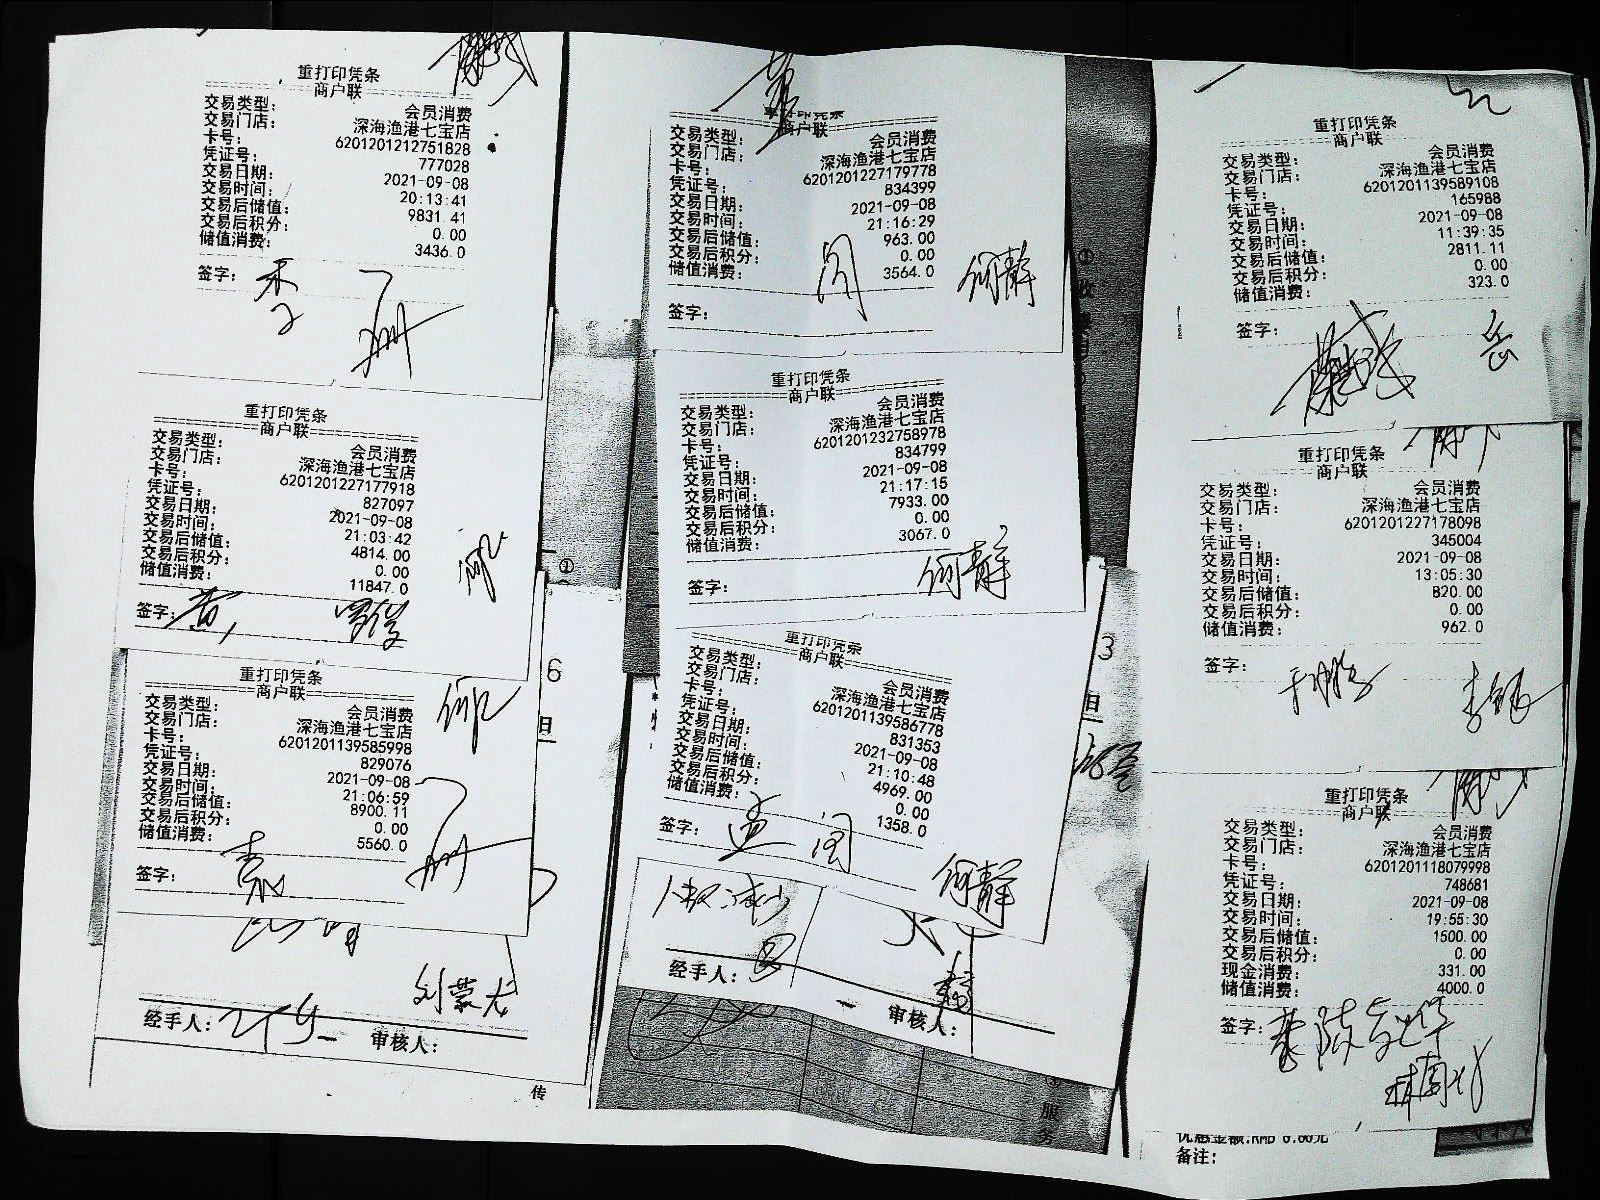 重打印凭条
商户联
交易类型： 会员消费
交易门店： 深海渔港七宝店
卡号： 6201201212751828
凭证号： 777028
交易日期： 2021-09-08
交易时间： 20:13:41
交易后储值： 9831.41
交易后积分： 0.00
储值消费： 3436.0
签字：
重打印凭条
商户联
交易类型： 会员消费
交易门店： 深海渔港七宝店
卡号： 6201201227177918
凭证号： 827097
交易日期： 2021-09-08
交易时间： 21:03:42
交易后储值： 4814.00
交易后积分： 0.00
储值消费： 11847.0
签字：
重打印凭条
商户联
交易类型： 会员消费
交易门店： 深海渔港七宝店
卡号： 6201201139585998
凭证号： 829076
交易日期： 2021-09-08
交易时间： 21:06:59
交易后储值： 8900.11
交易后积分： 0.00
储值消费： 5560.0
签字：
刘蒙尤
经手人： 审核人：
传
①
6
旦
商户联
交易类型： 会员消费
交易门店： 深海渔港七宝店
卡号： 6201201227179778
凭证号： 834399
交易日期： 2021-09-08
交易时间： 21:16:29
交易后储值： 963.00
交易后积分： 0.00
储值消费： 3564.0
何静
签字：
重打印凭条
商户联
交易类型： 会员消费
交易门店： 深海渔港七宝店
卡号： 6201201232758978
凭证号： 834799
交易日期： 2021-09-08
交易时间： 21:17:15
交易后储值： 7933.00
交易后积分： 0.00
储值消费： 3067.0
签字： 何静
重打印凭条
商户联
交易类型： 会员消费
交易门店： 深海渔港七宝店
卡号： 6201201139586778
凭证号： 831353
交易日期： 2021-09-08
交易时间： 21:10:48
交易后储值： 4969.00
交易后积分： 0.00
储值消费： 1358.0
签字： 孟 闵
何静
经手人： 审核人：
①
收
3
旦
服
务
重打印凭条
商户联
交易类型： 会员消费
交易门店： 深海渔港七宝店
卡号： 6201201139589108
凭证号： 165988
交易日期： 2021-09-08
交易时间： 11:39:35
交易后储值： 2811.11
交易后积分： 0.00
储值消费： 323.0
签字： 岳
重打印凭条
商户联
交易类型： 会员消费
交易门店： 深海渔港七宝店
卡号： 6201201227178098
凭证号： 345004
交易日期： 2021-09-08
交易时间： 13:05:30
交易后储值： 820.00
交易后积分： 0.00
储值消费： 962.0
签字：
重打印凭条
商户联
交易类型： 会员消费
交易门店： 深海渔港七宝店
卡号： 6201201118079998
凭证号： 748681
交易日期： 2021-09-08
交易时间： 19:55:30
交易后储值： 1500.00
交易后积分： 0.00
现金消费： 331.00
储值消费： 4000.0
签字：
优惠金额:RMB 0.00元
备注：